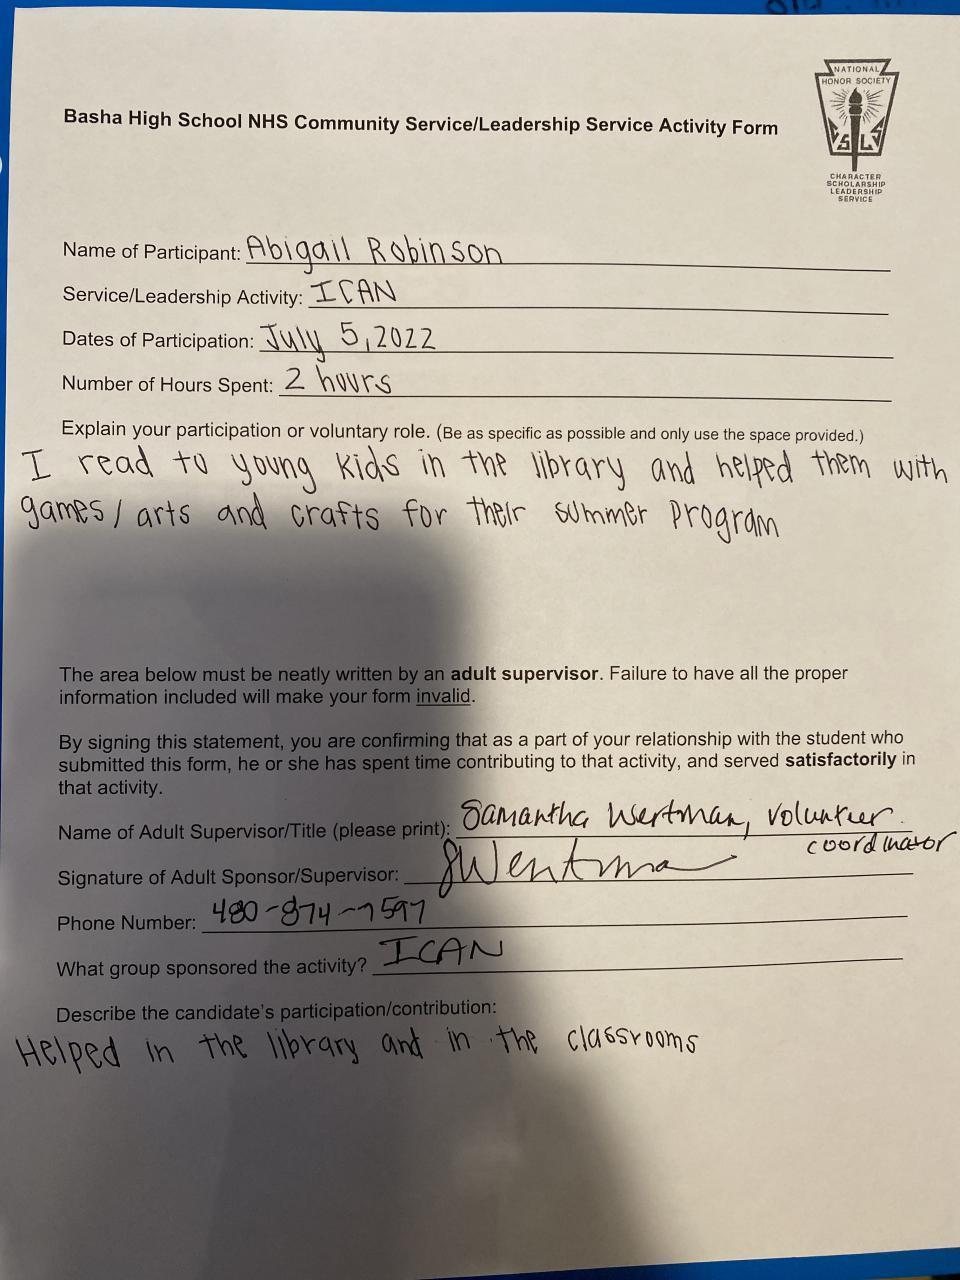 NATIONAL
HONOR SOCIETY
Basha High School NHS Community Service/Leadership Service Activity Form
CHARACTER
SCHOLARSHIP
LEADERSHIP
SERVICE
Name of Participant: Abigail Robinson
Service/Leadership Activity: ICAN
Dates of Participation: July 5, 2022
Number of Hours Spent: 2 hours
Explain your participation or voluntary role. (Be as specific as possible and only use the space provided.)
I read to young kids in the library and helped them with
games/ arts and crafts for their summer program
The area below must be neatly written by an adult supervisor. Failure to have all the proper
information included will make your form invalid.
By signing this statement, you are confirming that as a part of your relationship with the student who
submitted this form, he or she has spent time contributing to that activity, and served satisfactorily in
that activity.
Name of Adult Supervisor/Title (please print): Samantha Wertman, volunteer
coordinator
Signature of Adult Sponsor/Supervisor:
Phone Number: 480-874-7597
What group sponsored the activity? ICAN
Describe the candidate's participation/contribution:
Helped in the library and in the classrooms